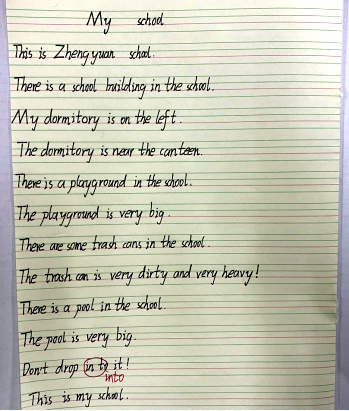 My school
This is Zhengyuan school.
There is a school building in the school.
My dormitory is on the left.
The dormitory is near the canteen.
There is a playground in the school.
The playground is very big.
There are some trash cans in the school.
The trash can is very dirty and very heavy!
There is a pool in the school.
The pool is very big.
Don't drop in to it!
into
This is my school.